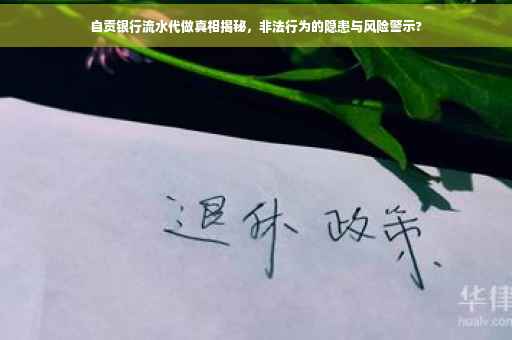 自贡银行流水代做真相揭秘，非法行为的隐患与风险警示?
退休 政策
华律
hualv.com